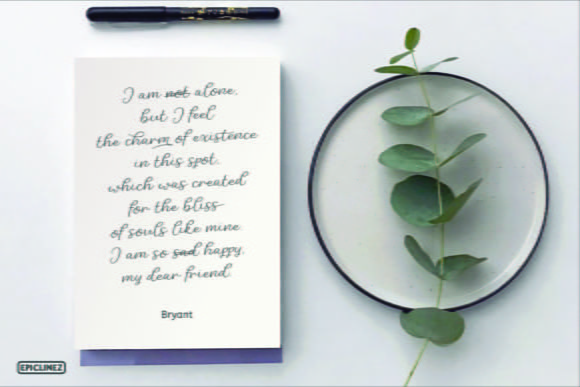 I am not alone,
but I feel
the charm of existence
in this spot,
which was created
for the bliss
of souls like mine
I am so sad happy,
my dear friend
Bryant
EPICLINEZ